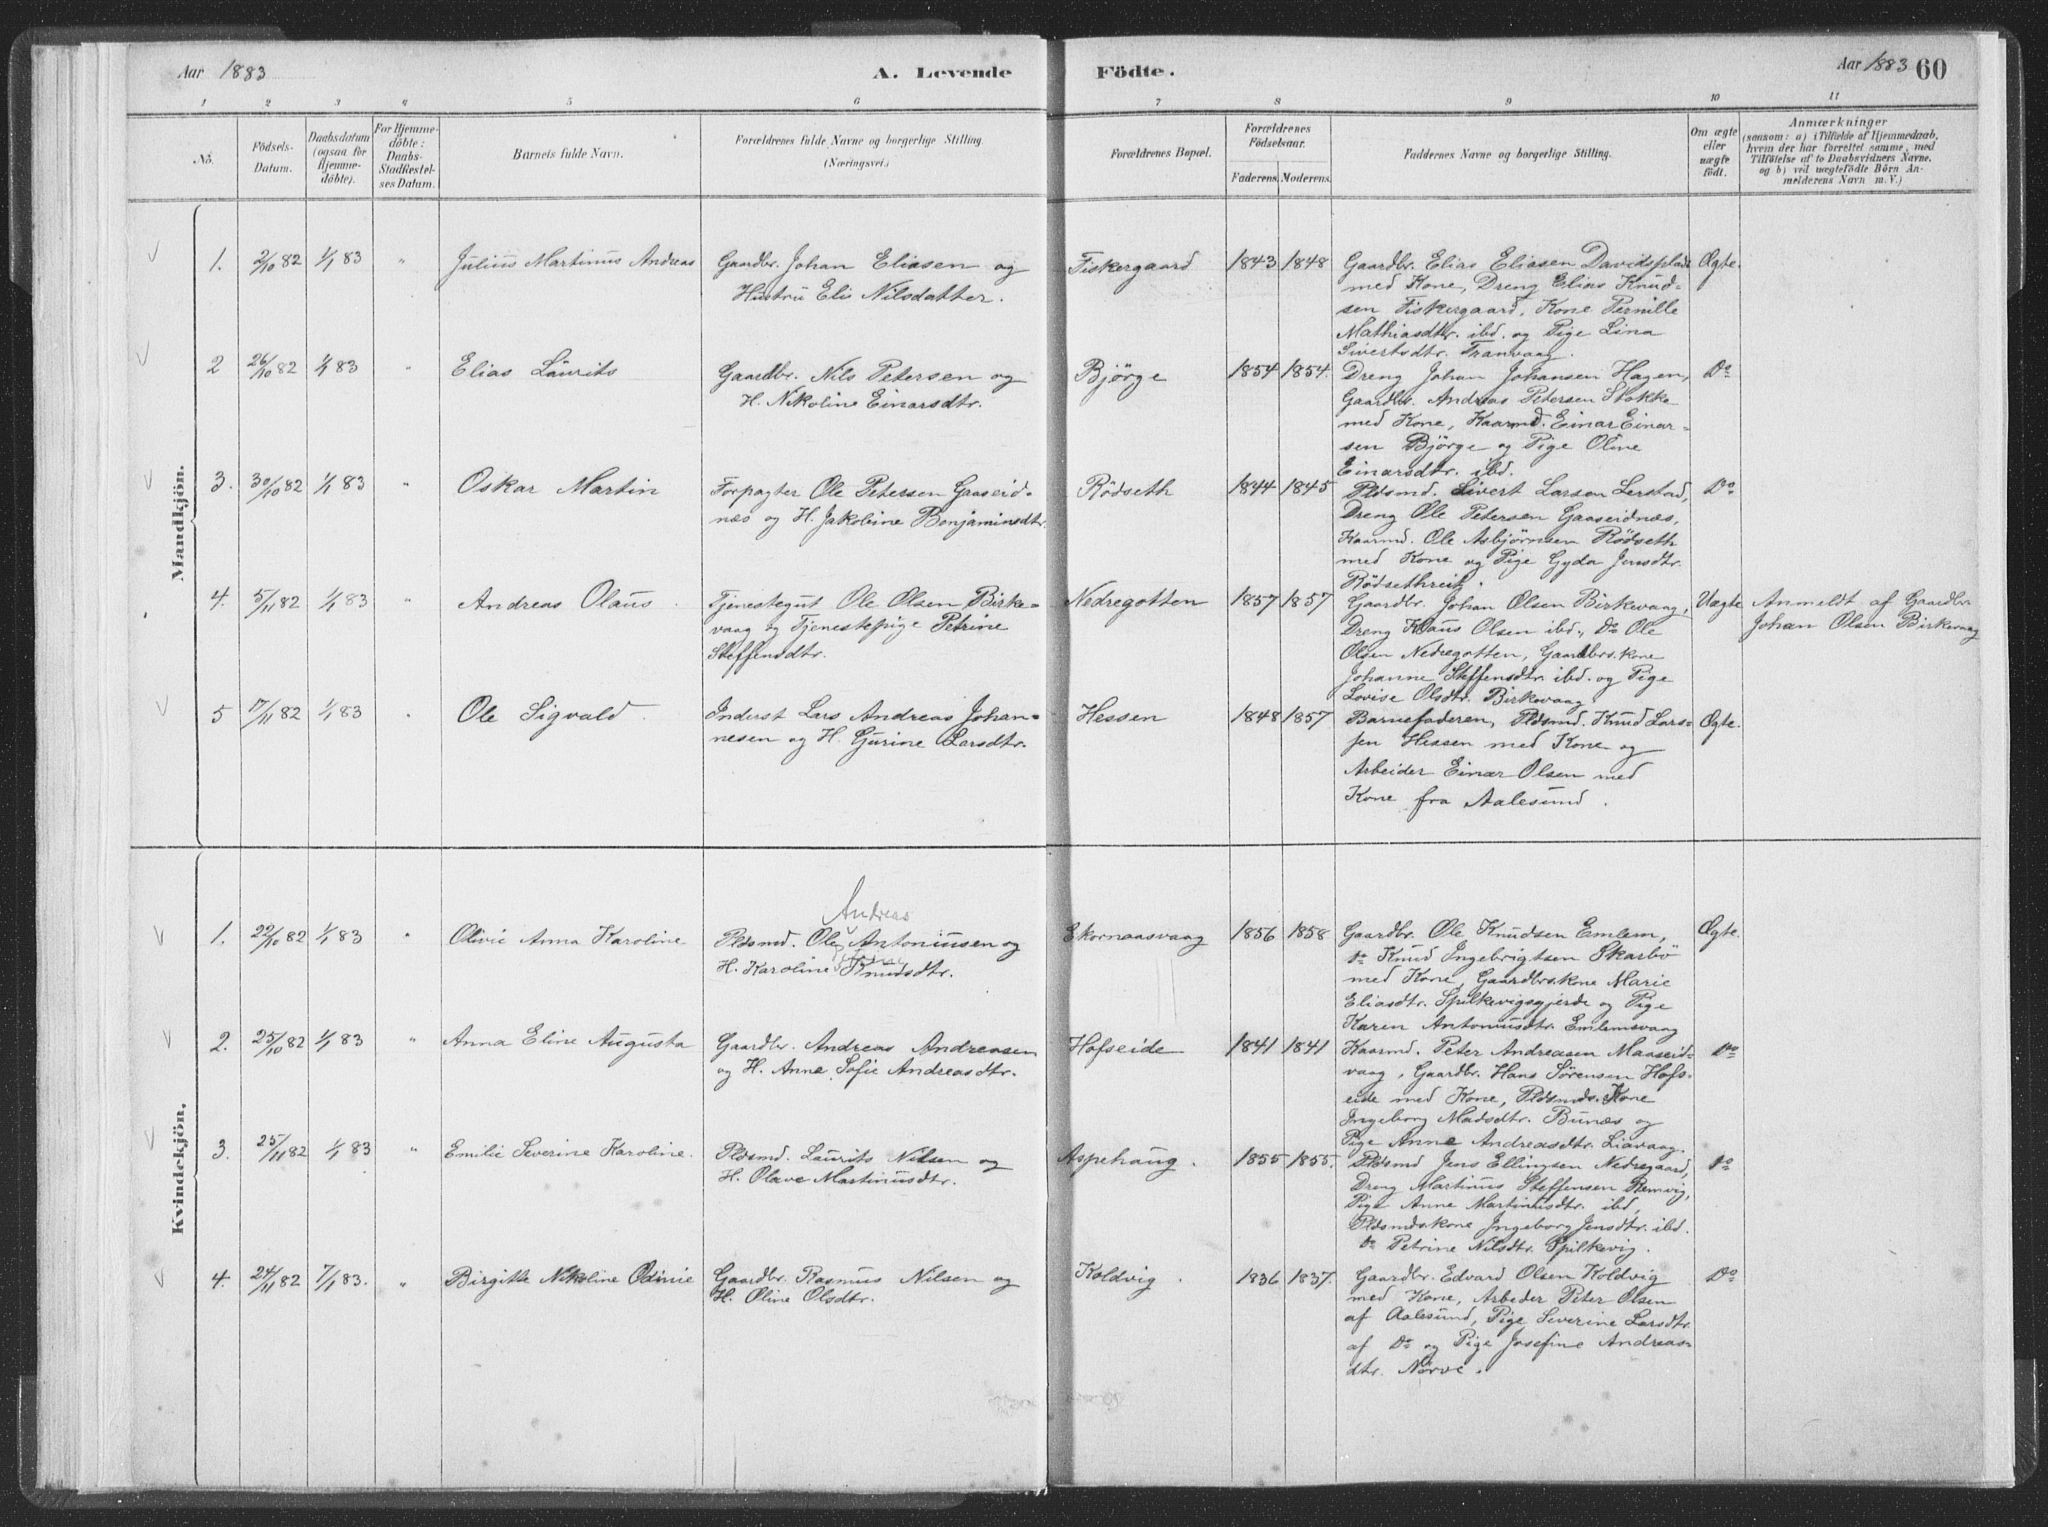 Aar 1883
A. Levende
Födte.
Aar 1883 60
1 2 3 4 5 6 7 8 9 10 11
No.
Födsels-
Datum.
Daabsdatum
(ogsaa for
Hjemme-
döbte).
For Hjemme-
döbte:
Daabs-
Stadfæstel-
ses Datum.
Barnets fulde Navn.
Forældrenes fulde Navne og borgerlige Stilling.
(Næringsvei.)
Forældrenes Bopæl.
Forældrenes
Födselsaar.
Faderens. Moderens.
Faddernes Navne og borgerlige Stilling.
Om ægte
eller
uægte
födt.
Anmærkninger
(saasom: a) i Tilfælde af Hjemmedaab,
hvem der har forrettet samme, med
Tilföielse af to Daabsvidners Navne,
og b) ved uægtefödte Börn An-
melderens Navn m. V.)
Mandkjön.
1. 2/10 82 1/1 83 " Julius Martinus Andreas
Gaardbr. Johan Eliasen og
Hustru Eli Nilsdatter.
Fiskergaard 1843 1848
Gaardbr. Elias Eliasen Davidsplads
med Kone, Dreng Elias Knud-
sen Fiskergaard, Kone Pernille
Mathiasdtr. ibd. og Pige Lina
Sivertsdtr. Tranvaag.
Ægte.
2 26/10 82 1/1 83 " Elias Laurits
Gaardbr. Nils Petersen og
H. Nikoline Einarsdtr.
Bjørge 1854 1854.
Dreng Johan Johansen Hagen,
Gaardbr. Andreas Petersen Stokke
med Kone, Kaarmd. Einar Einar-
sen Bjørge og Pige Oline
Einarsdtr. ibd.
Do
3. 30/10 82 1/1 83 " Oskar Martin
Forpagter Ole Petersen Gaaseid-
næs og H. Jakobine Benjaminsdtr.
Rödseth 1844 1845
Pldsmd. Sivert Larsen Lerstad,
Dreng Ole Petersen Gaaseidnæs,
Kaarmd. Ole Asbjørnsen Rödseth
med Kone og Pige Gyda Jensdtr.
Rödsethreit.
Do
4. 5/11 82 1/1 83 " Andreas Olaus.
Tjenestegut Ole Olsen Birke-
vaag og Tjenestepige Petrine
Steffensdtr.
Nedregotten 1857 1857
Gaardbr. Johan Olsen Birkevaag,
Dreng Klaus Olsen ibd., Do Ole
Olsen Nedregotten, Gaardbrs.kone
Johanne Steffensdtr. ibd. og Pige
Lovise Olsdtr. Birkevaag
Uægte
Anmeldt af Gaardbr.
Johan Olsen Birkevaag
5 17/11 82 1/1 83 " Ole Sigvald.
Inderst Lars Andreas Johan-
nesen og H. Gurine Larsdtr.
Hessen 1848 1857
Barnefaderen, Pldsmd. Knud Lars-
sen Hessen med Kone og
Arbeider Einar Olsen med
Kone fra Aalesund.
Ægte.
Kvindekjön.
1. 22/10 82 1/1 83 " Olivie Anna Karoline
Andreas
Pldsmd. Ole Antoniusen og
H. Karoline Knudsdtr.
Ekornaasvaag 1856 1858
Gaardbr. Ole Knudsen Emlem,
Do Knud Ingebrigtsen Skarbö
med Kone, Gaardbrskone Marie
Eliasdtr. Spilkevigsgjerde og Pige
Karen Antoniusdtr. Emlemsvaag
Ægte.
2. 25/10 82 1/1 83 " Anna Eline Augusta
Gaardbr. Andreas Andreasen
og H. Anne Sofie Andreasdtr.
Hofseide 1841 1841
Kaarmd. Peter Andreasen Maaseid-
vaag, Gaardbr. Hans Sørensen Hofs-
eide med Kone, Pldsmds. Kone
Ingeborg Madsdtr. Bunæs og
Pige Anne Andreasdtr. Liavaag.
Do
3. 25/11 82 1/1 83 " Emilie Severine Karoline.
Pldsmd. Laurits Nilsen og
H. Olave Martinusdtr.
Aspehaug. 1855 1855.
Pldsmd Jens Ellingsen Nedregaard,
Dreng Martinus Steffensen Remvig,
Pige Anne Martinusdtr. ibd,
Pldsmdskone Ingeborg Jensdtr. ibd.
Do Petrine Nilsdtr. Spilkevig.
Do
4. 24/11 82 7/1 83. " Birgitte Nikoline Odinie
Gaardbr. Rasmus Nilsen og
H. Oline Olsdtr.
Koldvig. 1836 1837.
Gaardbr. Edvard Olsen Koldvig
med Kone, Arbeder Peter Olsen
af Aalesund, Pige Severine Larsdtr.
af Do og Pige Josefine Andreas-
dtr. Nörve.
Do